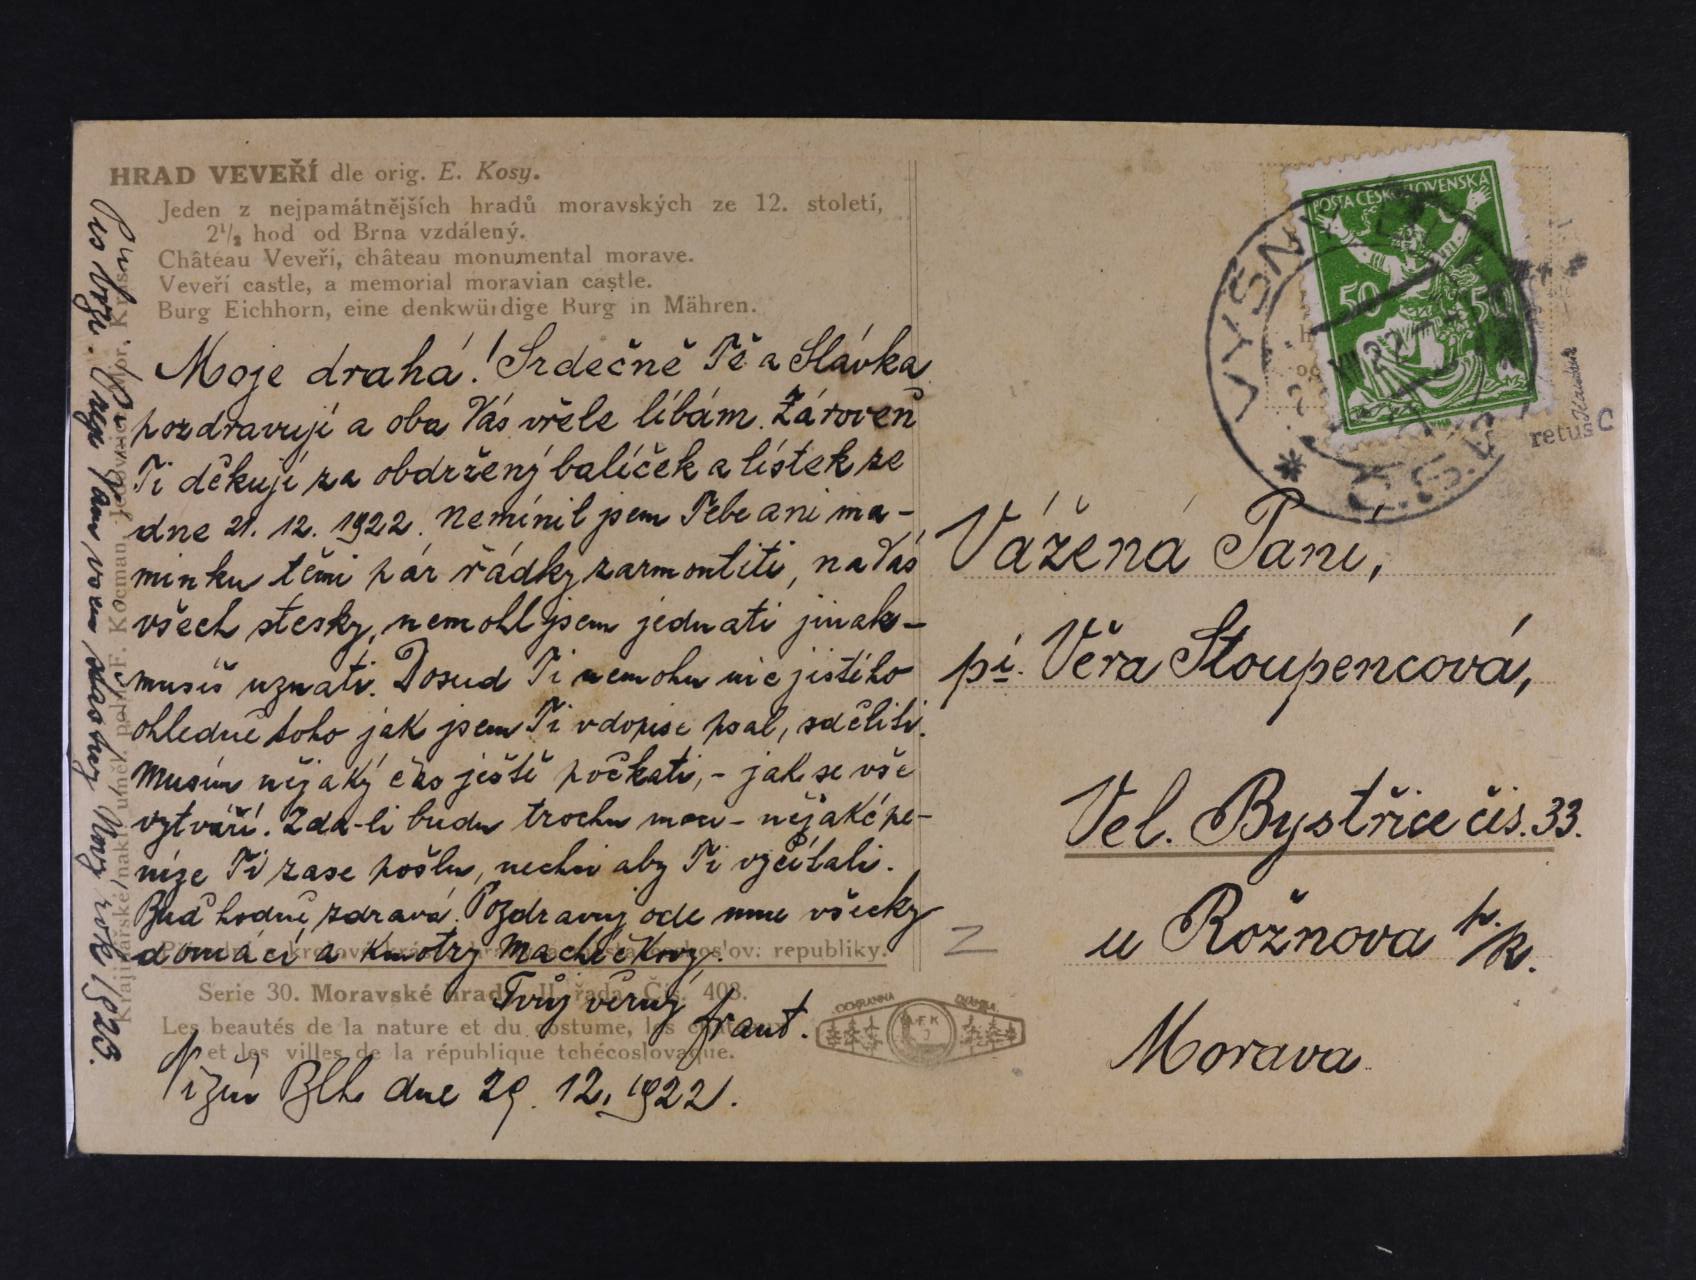 HRAD VEVEŘÍ dle orig. E. Kosy.
Jeden z nejpamátnějších hradů moravských ze 12. století,
2½ hod od Brna vzdálený.
Château Veveří, château monumental morave.
Veveří castle, a memorial moravian castle.
Burg Eichhorn, eine denkwürdige Burg in Mähren.
Moje drahá! Srdečně Tě a Slávka
pozdravuji a oba Vás vřele líbám. Zároveň
Ti děkuji za obdržený balíček a lístek ze
dne 21. 12. 1922. Nemínil jsem Tebe ani ma-
minku těmi pár řádky zarmoutiti, na Vás
všech stesky, nemohl jsem jednati jinak -
musíš uznati. Dosud Ti nemohu nic jistého
ohledně toho jak jsem Ti v dopise psal, sděliti.
Musím nějaký čas ještě počkati, - jak se vše
vytváří. Zda-li budu trochu moci - nějaké pe-
níze Ti zase pošlu, nechci aby Ti vyčítali.
Buď hodně zdravá. Pozdravuj ode mne všecky
domácí a kmotry Macháčkovy.
Tvůj věrný
Frant.
Nižní Blh dne 29. 12. 1922.
republiky.
Serie 30. Moravské hrady II. řada. Čís. 403.
Les beautés de la nature et du costume, les
et les villes de la république tchécoslovaque.
OCHRANNÁ ZNÁMKA
F. Kocman
Vám všem šťastný Nový rok 1923.
POŠTA ČESKOSLOVENSKÁ
50 50
VYŠNÝ
22
retuš C
Vážená Paní,
pí. Věra Stoupencová,
Vel. Bystřice čís. 33.
u Rožnova p/R.
Morava
Z